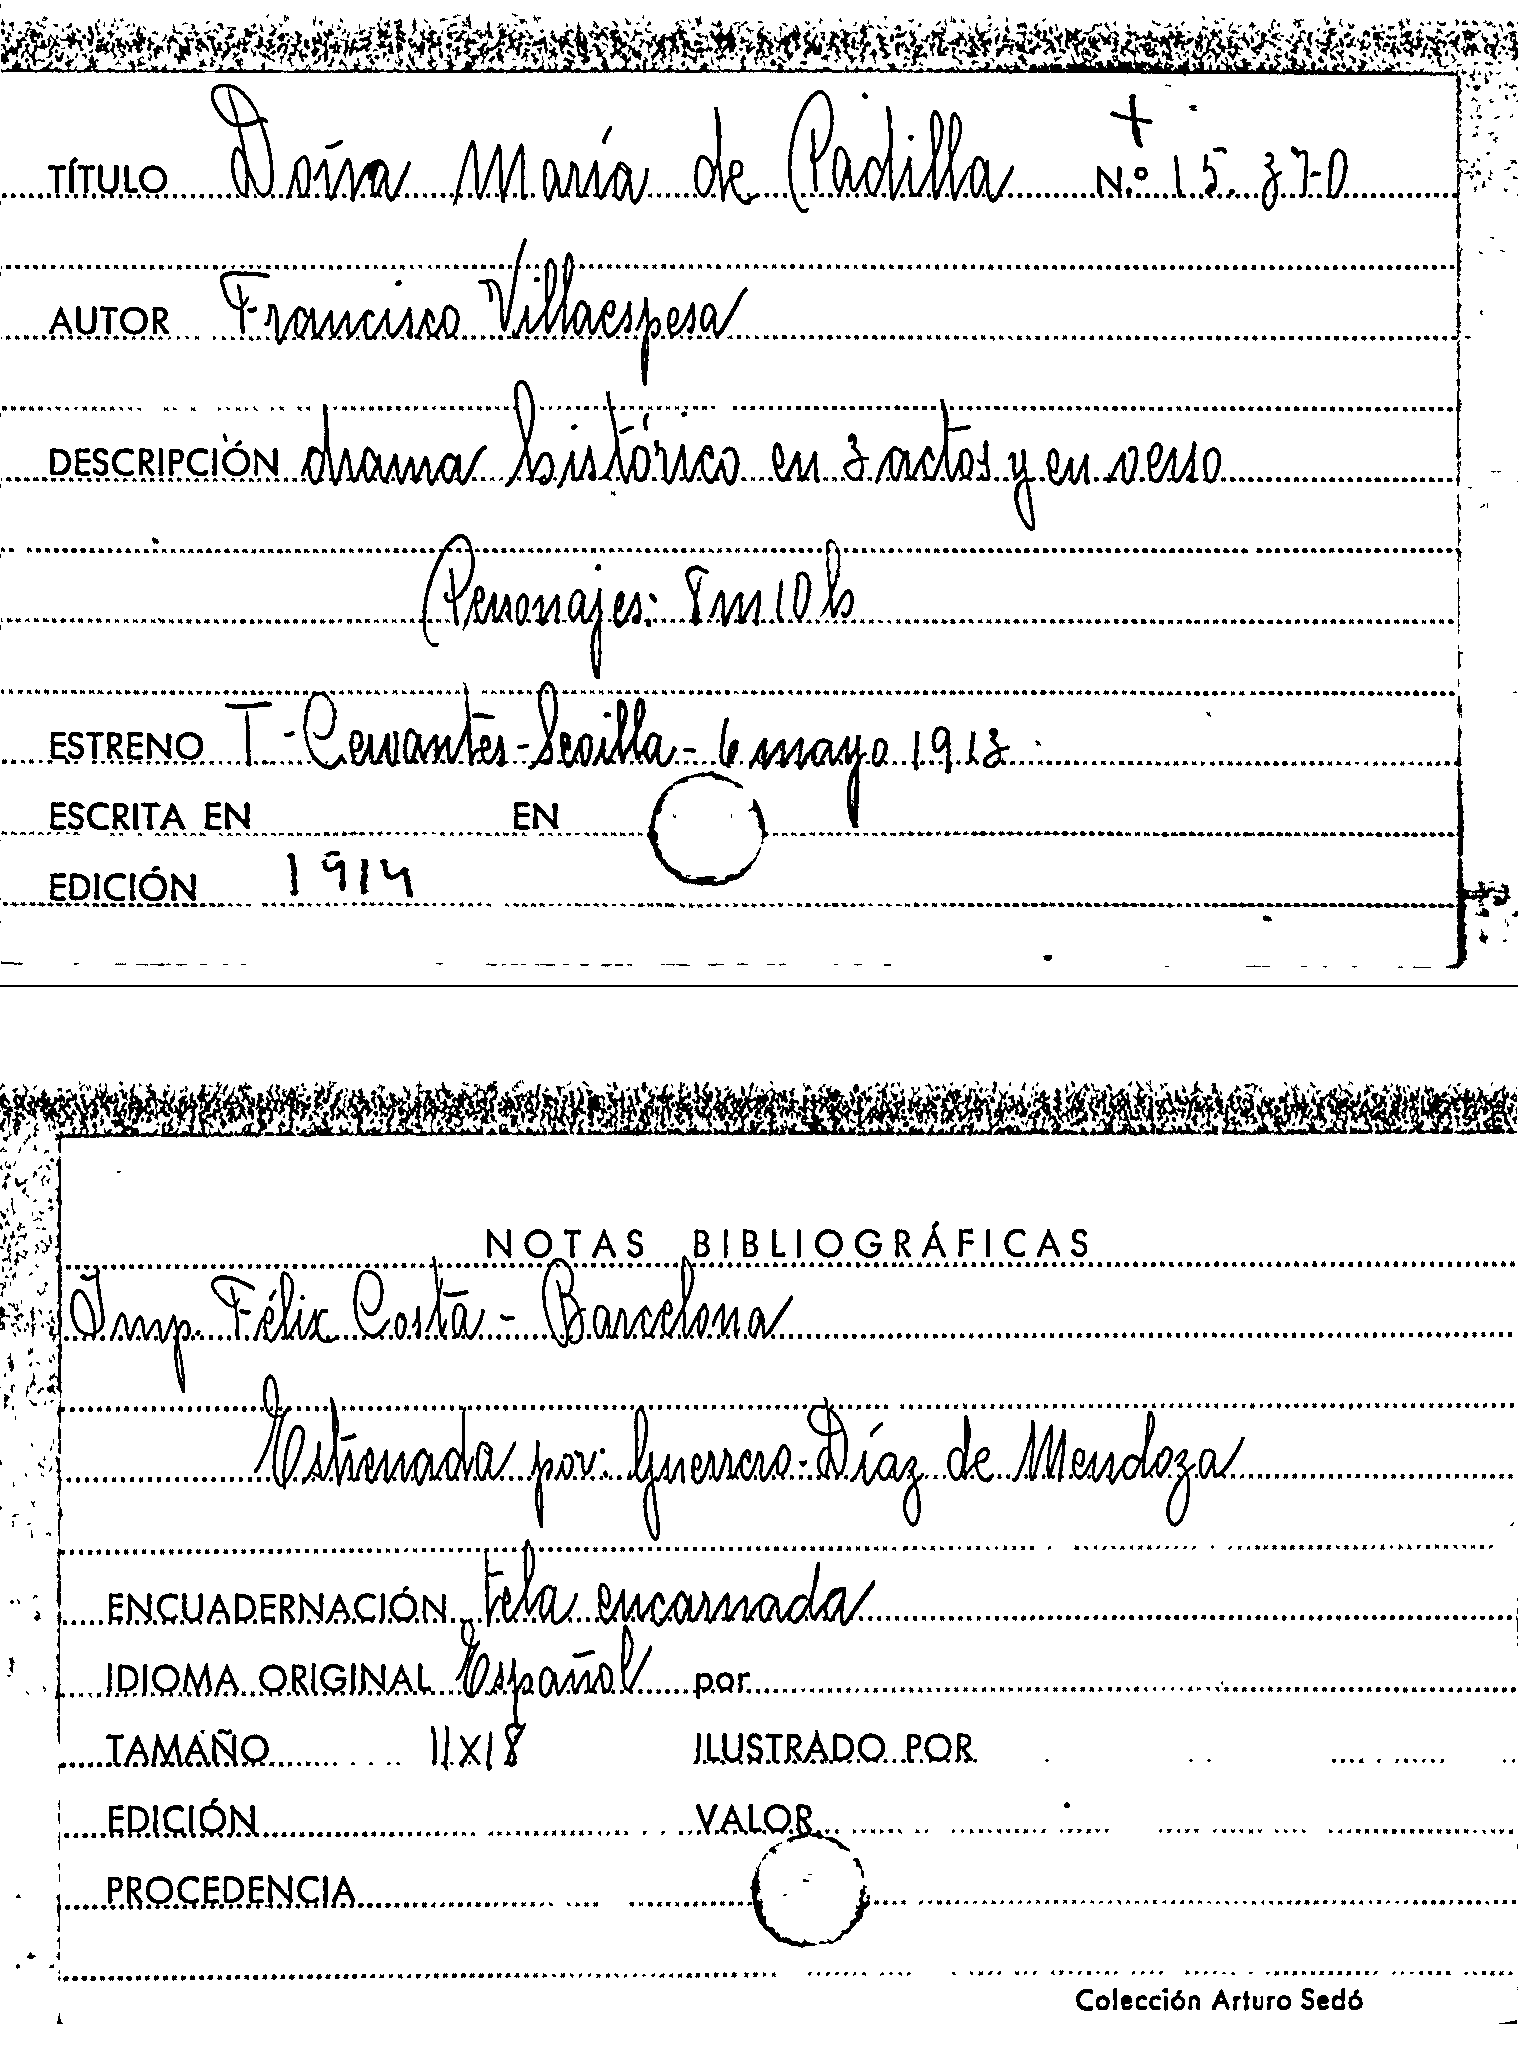 +
TÍTULO Doña María de Padilla N.º 15.370
AUTOR Francisco Villaespesa
DESCRIPCIÓN drama histórico en 3 actos y en verso
Personajes: 8 m 10 h
ESTRENO T. Cervantes-Sevilla-6 mayo 1913
ESCRITA EN EN
EDICIÓN 1914
NOTAS BIBLIOGRÁFICAS
Imp. Félix Costa - Barcelona
Estrenada por: Guerrero-Díaz de Mendoza
ENCUADERNACIÓN tela encarnada
IDIOMA ORIGINAL Español por
TAMAÑO 11x18 ILUSTRADO POR
EDICIÓN VALOR
PROCEDENCIA
Colección Arturo Sedó